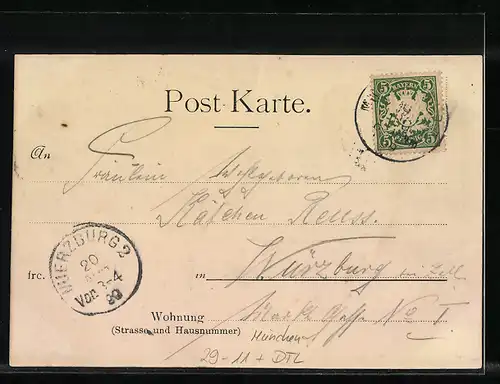 Post-Karte.
BAYERN
5 5
An Fräulein Wohlgeboren
Käthchen Reuss.
WUERZBURG 2
20
Vor. 3-4
99
frc. in Würzburg
Wohnung
(Strasse und Hausnummer)
No I
München
29-11 + DTL